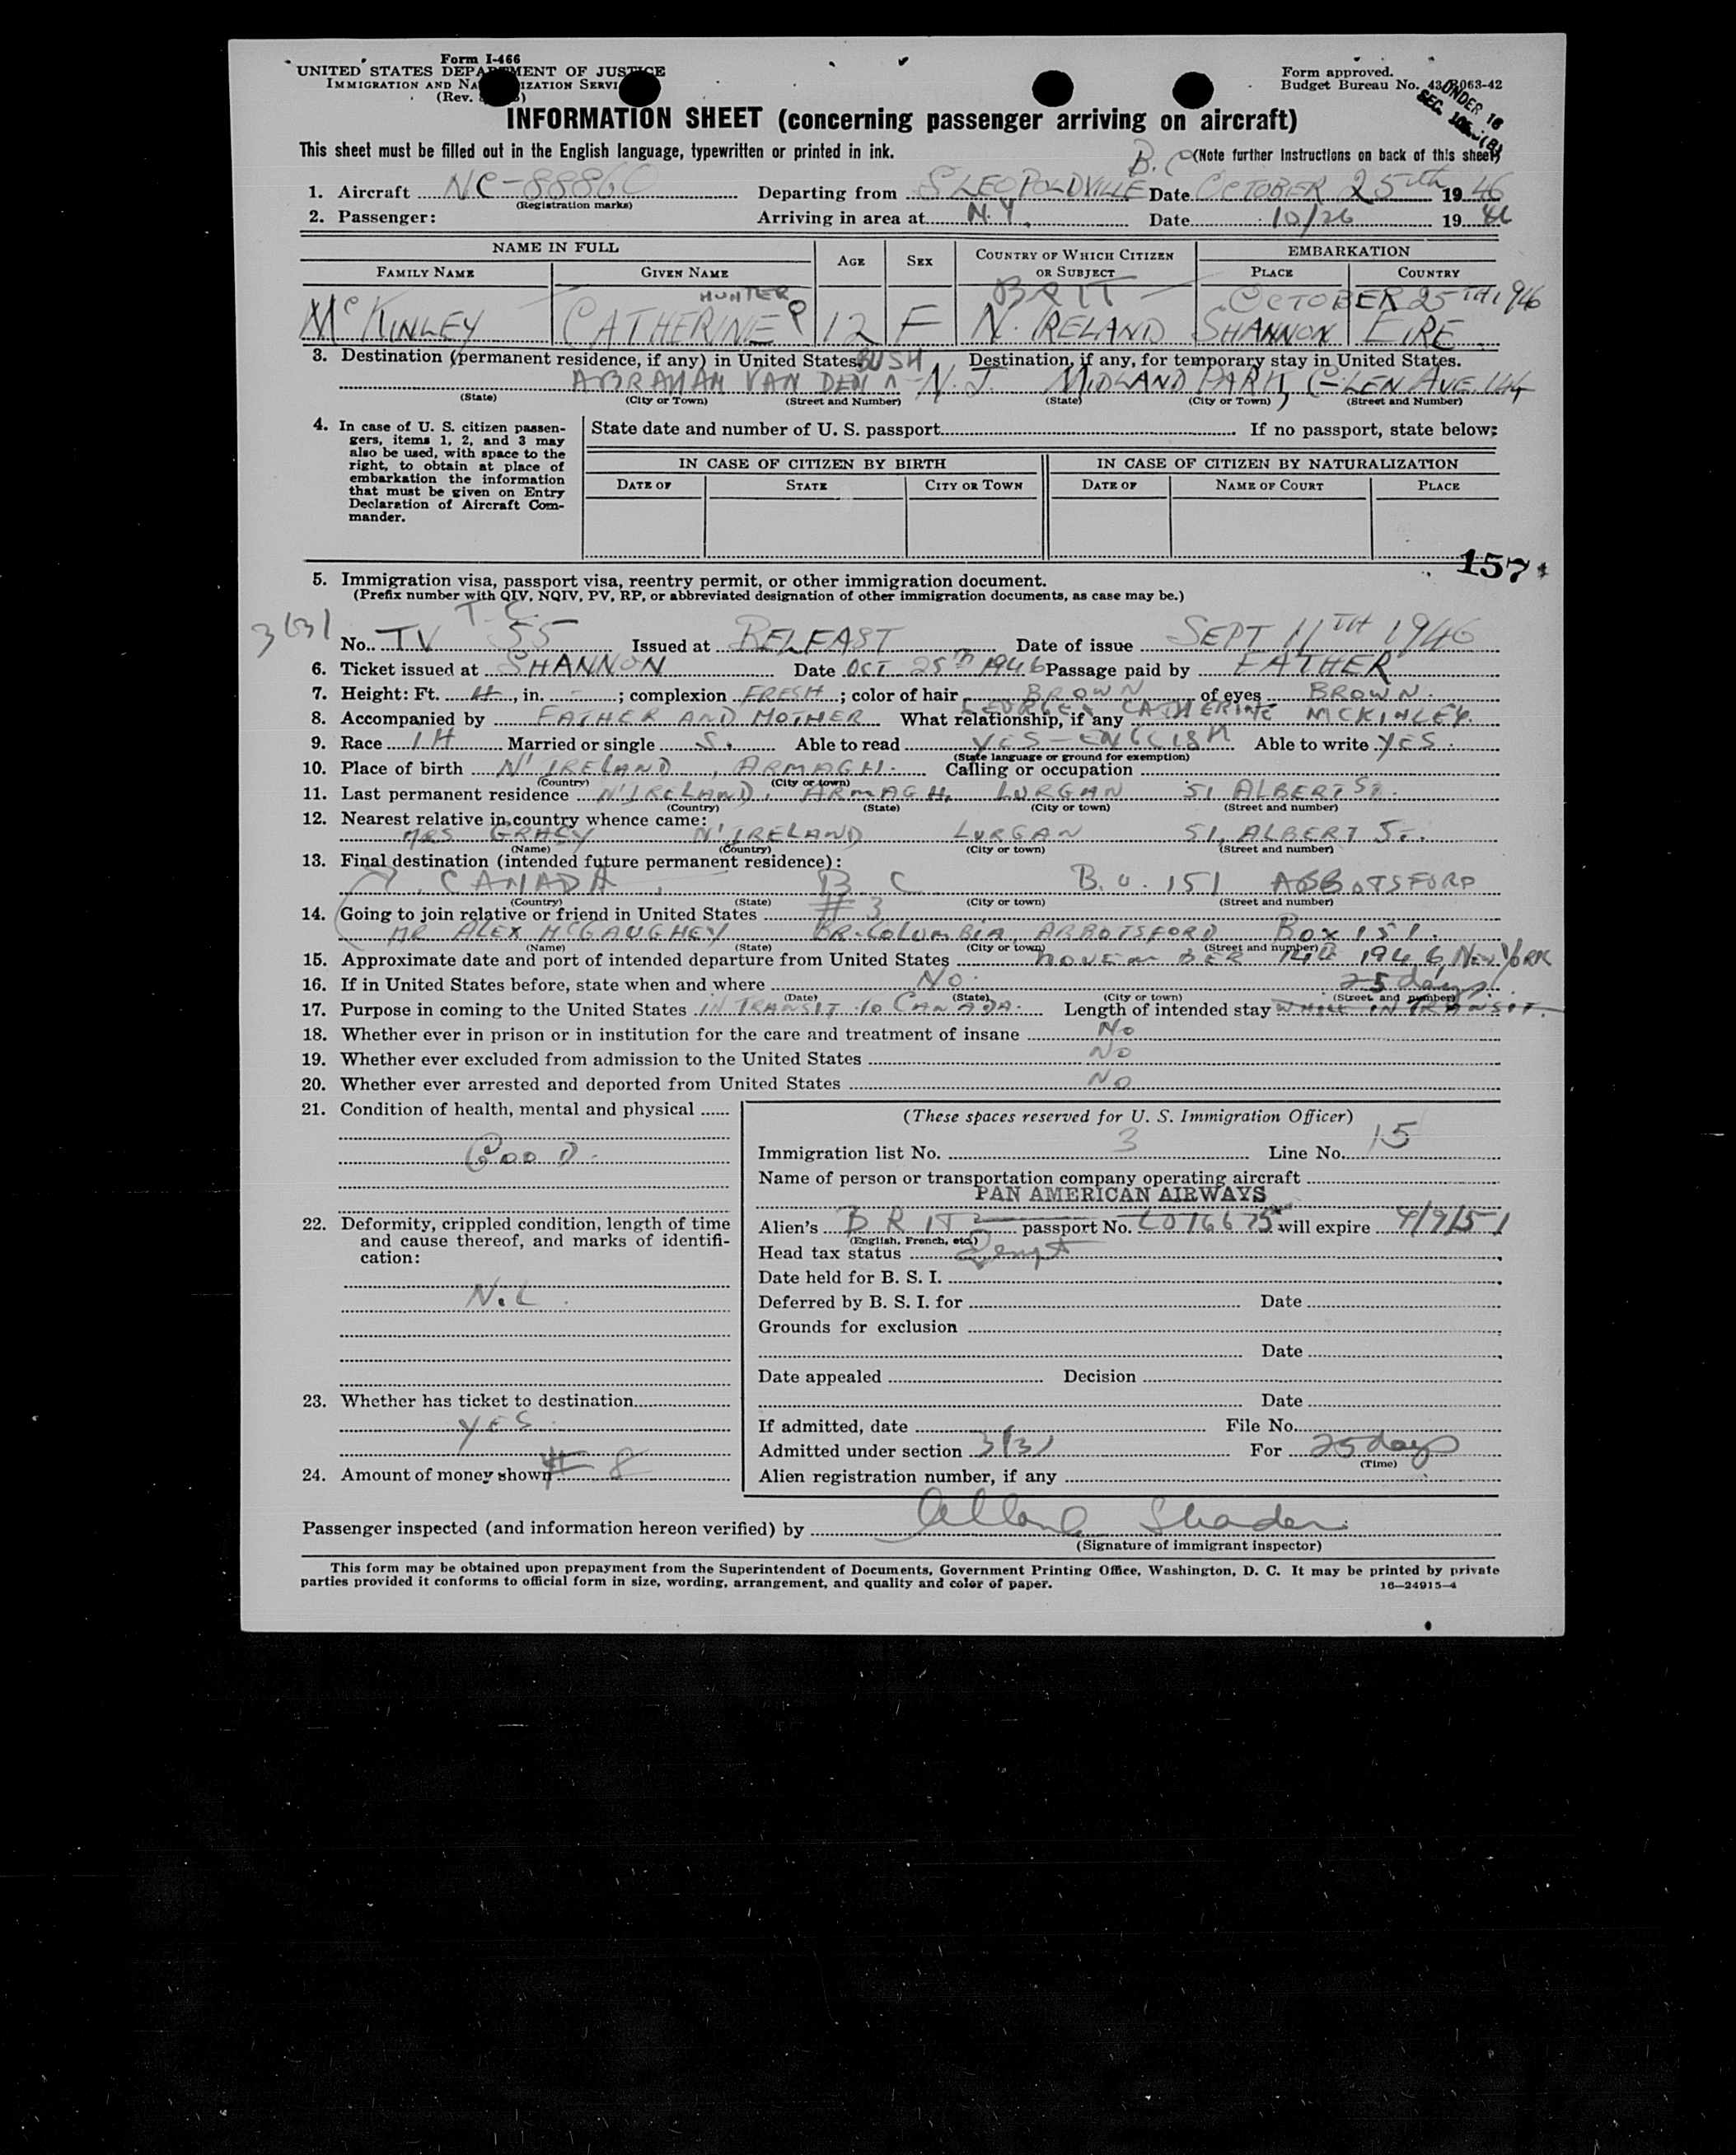 Form I-466
UNITED STATES DEPARTMENT OF JUSTICE
IMMIGRATION AND NATURALIZATION SERVICE
(Rev.
Form approved.
Budget Bureau No. 43-R063-42
UNDER 16
SEC.
INFORMATION SHEET (concerning passenger arriving on aircraft)
This sheet must be filled out in the English language, typewritten or printed in ink.
(Note further instructions on back of this sheet)
B.C
1. Aircraft NC-88860 Departing from LEOPOLDVILLE Date OCTOBER 25th 1946
(Registration marks)
2. Passenger: Arriving in area at N.Y. Date 10/26 1946
NAME IN FULL AGE SEX COUNTRY OF WHICH CITIZEN OR SUBJECT EMBARKATION
FAMILY NAME GIVEN NAME PLACE COUNTRY
HUNTER BRIT OCTOBER 25TH 1946
McKINLEY CATHERINE 12 F N. IRELAND SHANNON EIRE
3. Destination (permanent residence, if any) in United States. Destination, if any, for temporary stay in United States.
BUSH
ABRAHAM VAN DEN N.J. MIDLAND PARK, GLEN AVE. 144
(State) (City or Town) (Street and Number) (State) (City or Town) (Street and Number)
4. In case of U. S. citizen passen-
gers, items 1, 2, and 3 may
also be used, with space to the
right, to obtain at place of
embarkation the information
that must be given on Entry
Declaration of Aircraft Com-
mander.
State date and number of U. S. passport If no passport, state below:
IN CASE OF CITIZEN BY BIRTH IN CASE OF CITIZEN BY NATURALIZATION
DATE OF STATE CITY OR TOWN DATE OF NAME OF COURT PLACE
157
5. Immigration visa, passport visa, reentry permit, or other immigration document.
(Prefix number with QIV, NQIV, PV, RP, or abbreviated designation of other immigration documents, as case may be.)
3(3)
T.C.
No. TV 55 Issued at BELFAST Date of issue SEPT 11TH 1946
6. Ticket issued at SHANNON Date OCT 25TH 1946 Passage paid by FATHER
7. Height: Ft. 4, in. - ; complexion FRESH; color of hair BROWN of eyes BROWN.
8. Accompanied by FATHER AND MOTHER What relationship, if any GEORGE & CATHERINE MCKINLEY.
9. Race IH Married or single S. Able to read YES-ENGLISH Able to write YES.
(State language or ground for exemption)
10. Place of birth N' IRELAND, ARMAGH. Calling or occupation
(Country) (City or town)
11. Last permanent residence N' IRELAND, ARMAGH, LURGAN 51 ALBERT ST.
(Country) (State) (City or town) (Street and number)
12. Nearest relative in country whence came:
MRS GRACY N' IRELAND LURGAN 51, ALBERT ST.
(Name) (Country) (City or town) (Street and number)
13. Final destination (intended future permanent residence):
CANADA B C B.O. 151 ABBOTSFORD
(Country) (State) (City or town) (Street and number)
14. Going to join relative or friend in United States # 3
MR ALEX MCGAUGHEY BR. COLUMBIA, ABBOTSFORD BOX 151.
(Name) (State) (City or town) (Street and number)
15. Approximate date and port of intended departure from United States NOVEMBER 14TH 1946, NEW YORK
16. If in United States before, state when and where NO.
(Date) (State) (City or town) (Street and number)
25 days.
17. Purpose in coming to the United States IN TRANSIT TO CANADA. Length of intended stay WHILE IN TRANSIT.
18. Whether ever in prison or in institution for the care and treatment of insane NO
19. Whether ever excluded from admission to the United States NO
20. Whether ever arrested and deported from United States NO
21. Condition of health, mental and physical
GOOD.
22. Deformity, crippled condition, length of time
and cause thereof, and marks of identifi-
cation:
N.L.
23. Whether has ticket to destination
YES.
24. Amount of money shown # 8
(These spaces reserved for U. S. Immigration Officer)
Immigration list No. 3 Line No. 15
Name of person or transportation company operating aircraft
PAN AMERICAN AIRWAYS
Alien's BRIT passport No. L016675 will expire 9/9/51
(English, French, etc.)
Head tax status
Date held for B. S. I.
Deferred by B. S. I. for Date
Grounds for exclusion
Date
Date appealed Decision
Date
If admitted, date File No.
Admitted under section 3(3) For 25 days
(Time)
Alien registration number, if any
Passenger inspected (and information hereon verified) by
(Signature of immigrant inspector)
This form may be obtained upon prepayment from the Superintendent of Documents, Government Printing Office, Washington, D. C. It may be printed by private
parties provided it conforms to official form in size, wording, arrangement, and quality and color of paper.
16—24915-4